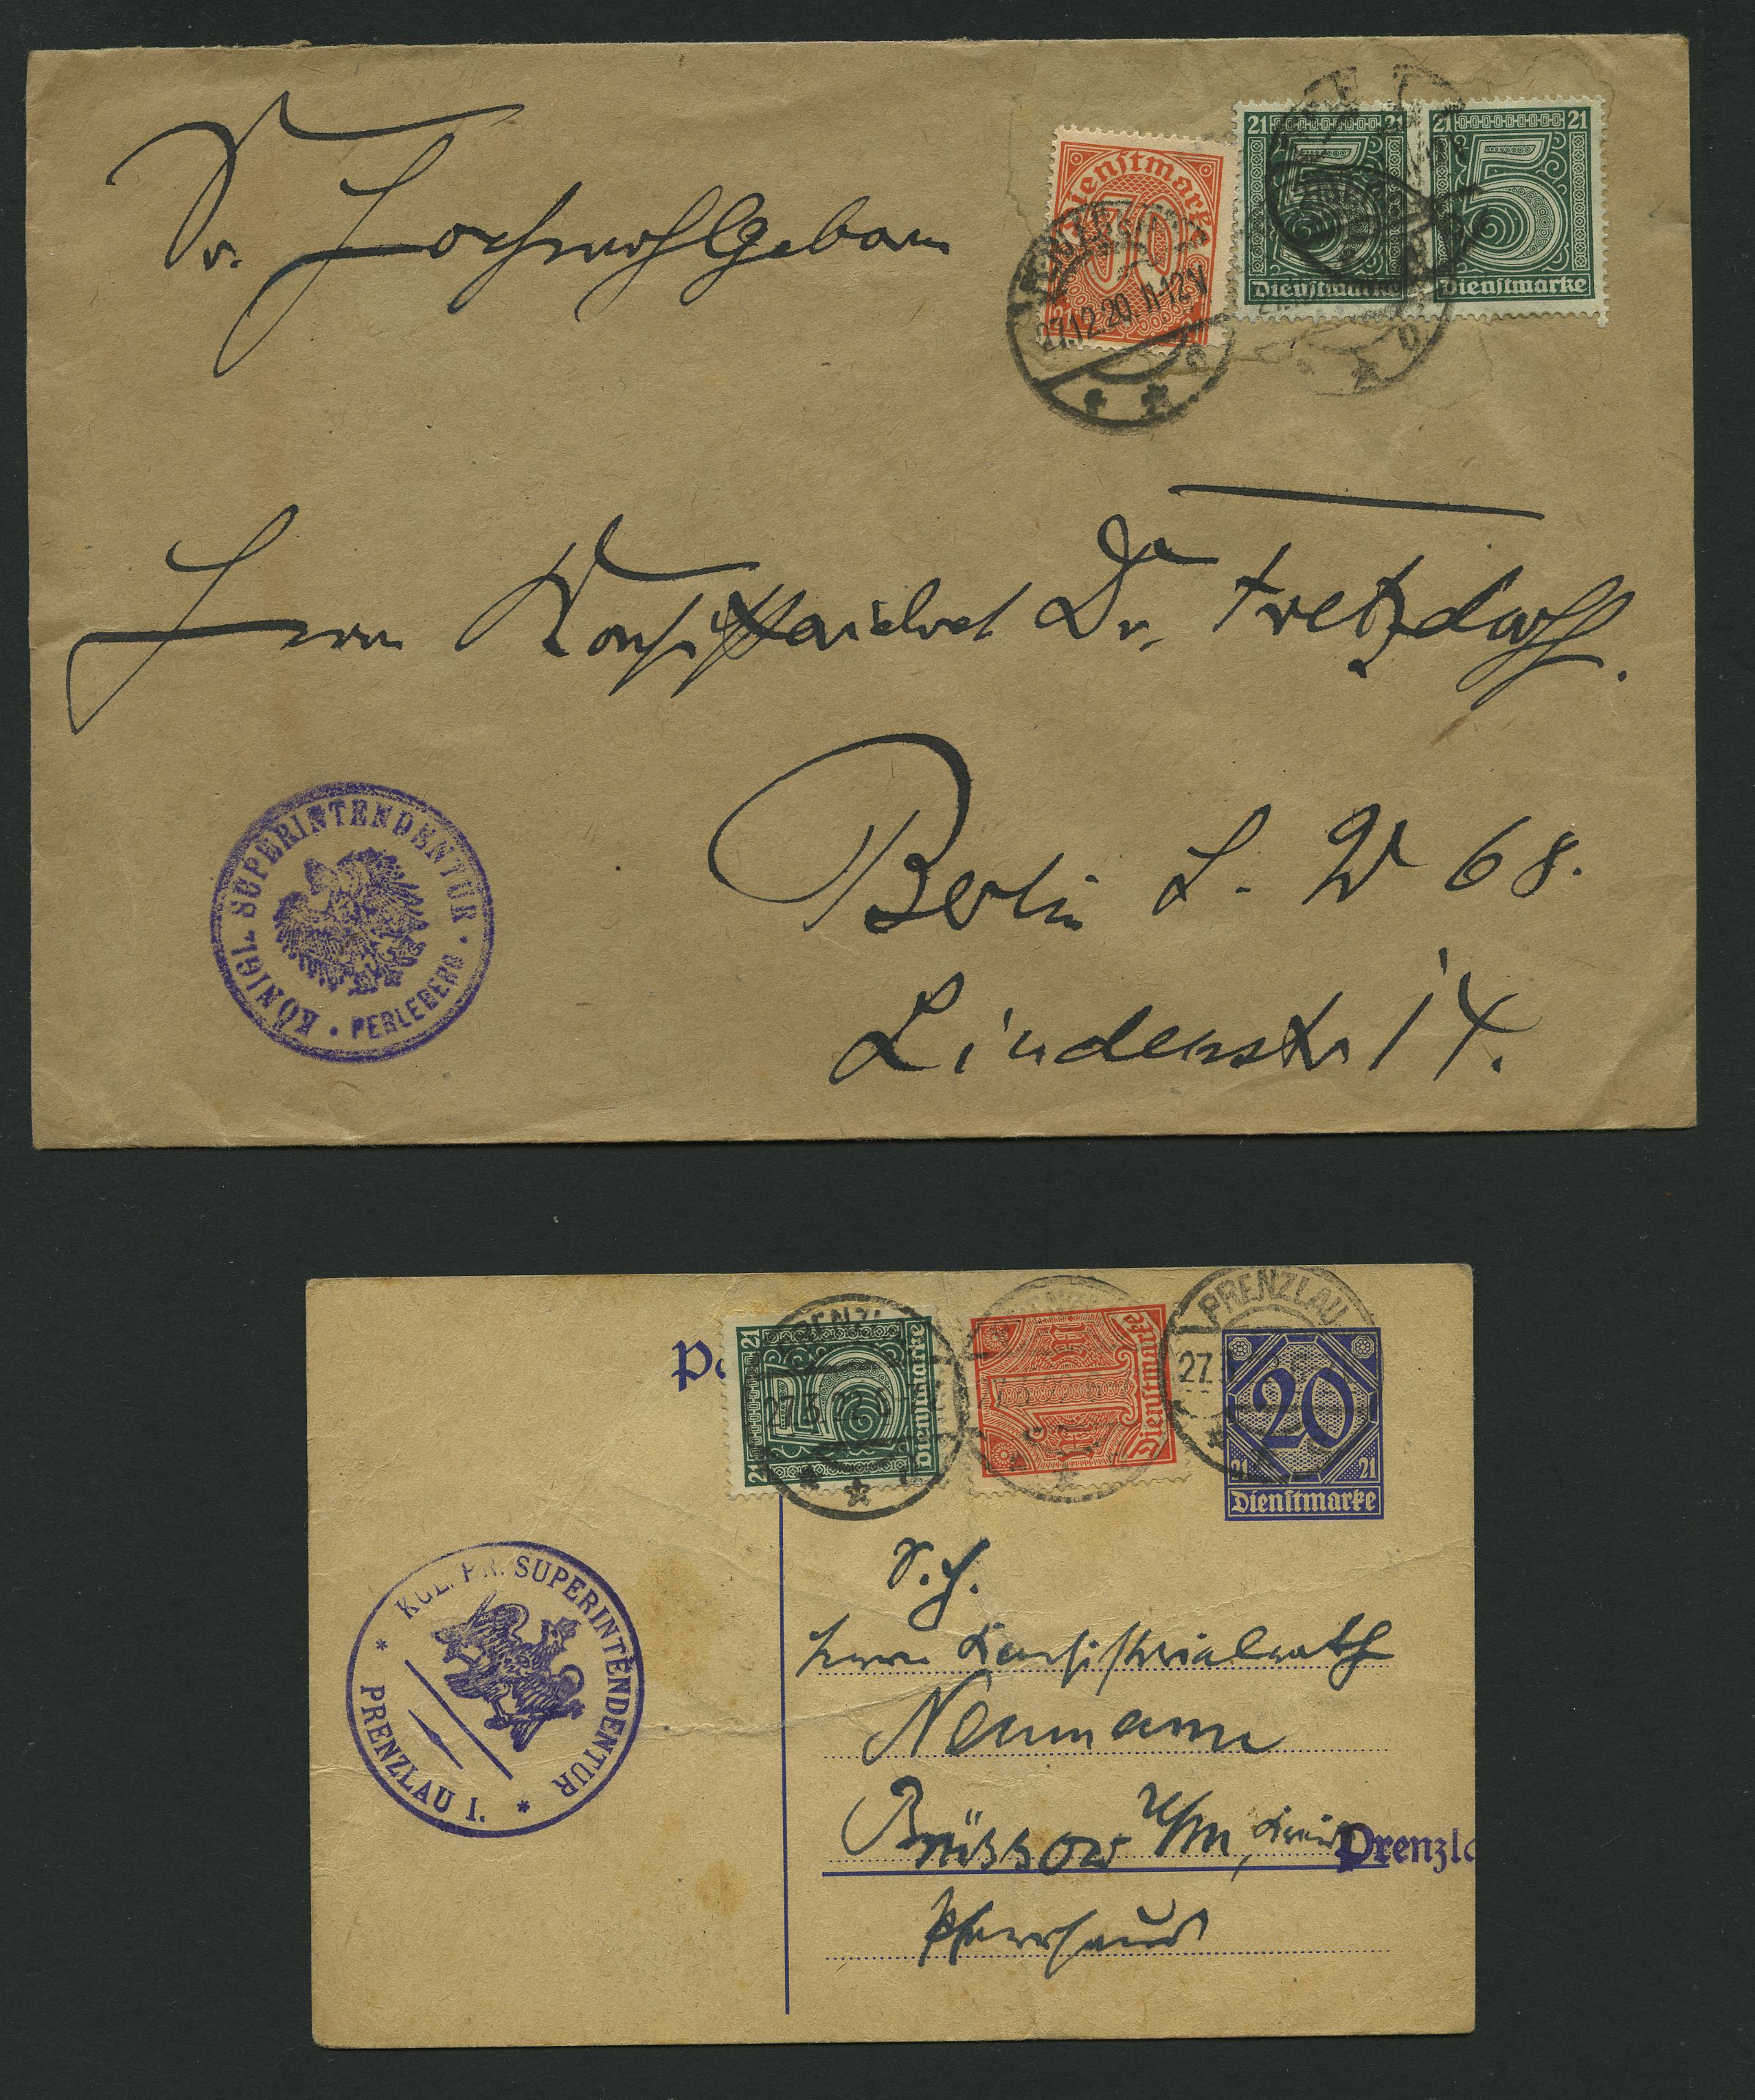 Sr. Hochwohlgeboren
21 21
5
Dienstmarke
21 21
5
Dienstmarke
Dienstmarke
27.12.20. 11-12V
c
Herrn Konsistorialrat Dr. Fretzdorff.
Berlin S. W 68.
Lindenstr 14.
KÖNIGL. SUPERINTENDENTUR · PERLEBERG ·
PRENZLAU
27.
20
21 21
Dienstmarke
21 21
5
Dienstmarke
10
Dienstmarke
S. H.
Herrn Konsistorialrath
Neumann
Brüssow U/M, Kreis Prenzla
Pfarrhaus
KGL. PR. SUPERINTENDENTUR
* PRENZLAU I. *